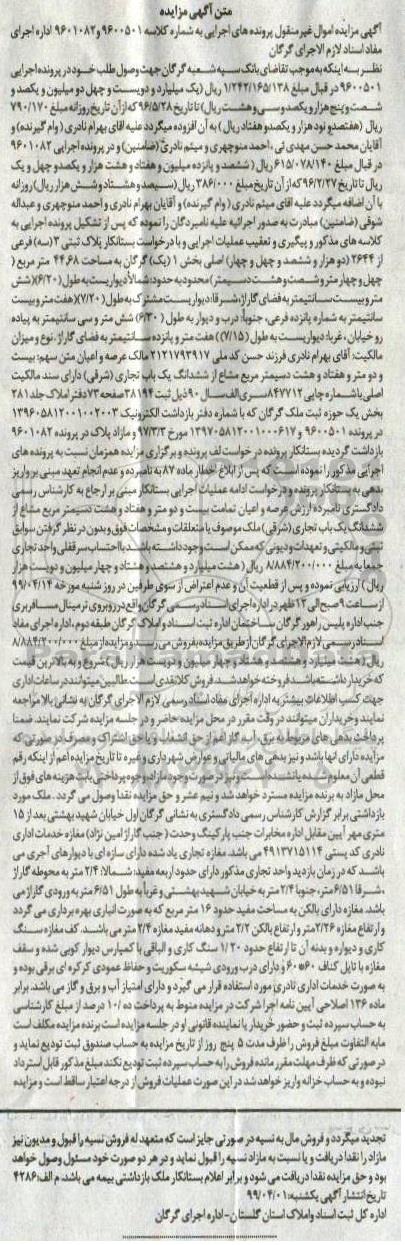 متن آگهی مزایده
آگهی مزایده اموال غیر منقول پرونده های اجرایی به شماره کلاسه ۹۶۰۰۵۰۱ و ۹۶۰۱۰۸۲ اداره اجرای
مفاد اسناد لازم الاجرای گرگان
نظر به اینکه به موجب تقاضای بانک سپه شعبه گرگان جهت وصول طلب خود در پرونده اجرایی
۹۶۰۰۵۰۱ در قبال مبلغ ۱/۲۴۲/۱۶۵/۱۳۸ ریال (یک میلیارد و دویست و چهل دو میلیون و یکصد و
شصت و پنج هزار و یکصد و سی و هشت ریال) تا تاریخ ۹۶/۵/۲۸ که از آن تاریخ روزانه مبلغ ۷۹۰/۱۷۰
ریال (هفتصد و نود هزار و یکصد و هفتاد ریال) به آن افزوده میگردد علیه آقای بهرام نادری (وام گیرنده) و
آقایان محمد حسن مهدی نی، احمد منوچهری و میثم نادری (ضامنین) و در پرونده اجرایی ۹۶۰۱۰۸۲
در قبال مبلغ ۶۱۵/۰۷۸/۱۴۰ ریال (ششصد و پانزده میلیون و هفتاد و هشت هزار و یکصد و چهل و یک
ریال تا تاریخ ۹۶/۲/۲۷ که از آن تاریخ مبلغ ۳۸۶/۰۰۰ ریال (سیصد و هشتاد و شش هزار ریال) روزانه
با آن اضافه میگردد علیه آقای میثم نادری (وام گیرنده) و آقایان بهرام نادری و احمد منوچهری و عبداله
شوقی (ضامنین) مبادرت به صدور اجرائیه علیه نامبردگان را نموده که پس از تشکیل پرونده اجرایی به
کلاسه های مذکور و پیگیری و تعقیب عملیات اجرایی و با درخواست بستانکار پلاک ثبتی ۳ (سه) فرعی
از ۲۶۴۴ (دو هزار و ششصد و چهل و چهار) اصلی بخش ۱ (یک) گرگان به مساحت ۴۴.۶۸ متر مربع (
چهل و چهار متر و شصت و هشت دسیمتر) محدود به حدود: شمالاً دیواریست به طول (۶/۲۰) (شش
متر و بیست سانتیمتر به فضای گاراژ، شرقا: دیواریست مشترک به طول (۷/۲۰) (هفت متر و بیست
سانتیمتر به شماره پانزده فرعی، جنوباً: درب و دیوار به طول (۶/۳۰) شش متر و سی سانتیمتر به پیاده
رو خیابان، غربا: دیواریست به طول (۷/۱۵) (هفت متر و پانزده سانتیمتر به فضای گاراژ. نوع و میزان
مالکیت: آقای بهرام نادری فرزند حسن کد ملی ۲۱۲۱۷۹۳۹۱۷ مالک عرصه و اعیان متن سهم: بیست
و دو متر و هفتاد و هشت دسیمتر مربع مشاع از ششدانگ یک باب تجاری (شرقی) دارای سند مالکیت
اصلی با شماره چاپی ۸۴۷۷۱۲ سری الف سال ۹۰ ذیل ثبت ۳۸۱۹۴ صفحه ۷۳ دفتر املاک جلد ۲۸۱
بخش یک حوزه ثبت ملک گرگان که با شماره دفتر بازداشت الکترونیک ۱۳۹۶۰۵۸۱۲۰۰۱۰۰۲۰۰۳
در پرونده ۹۶۰۰۵۰۱ و ۱۳۹۷۰۵۸۱۲۰۰۱۰۰۰۶۱۷ مورخ ۹۷/۳/۳ و مازاد پلاک در پرونده ۹۶۰۱۰۸۲
بازداشت گردیده بستانکار پرونده درخواست لف پرونده و برگزاری مزایده همزمان نسبت به پرونده های
اجرایی مذکور را نموده است که پس از ابلاغ اخطار ماده ۸۷ به نامبرده و عدم انجام تعهد مبنی بر واریز
بدهی به بستانکار پرونده و درخواست ادامه عملیات اجرایی بستانکار مبنی بر ارجاع به کارشناس رسمی
دادگستری نامبرده ارزش عرصه و اعیان تمامت بیست و دو متر و هفتاد و هشت دسیمتر مربع مشاع از
ششدانگ یک باب تجاری (شرقی) ملک موصوف با متعلقات و مشخصات فوق و بدون در نظر گرفتن سوابق
ثبتی و مالکیتی و تعهدات و دیونی که ممکن است وجود داشته باشد با احتساب سرقفلی واحد تجاری
جمعا به مبلغ ۸/۸۸۴/۲۰۰/۰۰۰ ریال (هشت میلیارد و هشتصد و هشتاد و چهار میلیون و دویست هزار
ریال) ارزیابی نموده و پس از قطعیت آن و عدم اعتراض از سوی طرفین در روز شنبه مورخه ۹۹/۰۴/۱۴
از ساعت ۹ صبح الی ۱۲ ظهر در اداره اجرای اسناد رسمی گرگان واقع در روبروی ترمینال مسافربری
جنب اداره پلیس راهور گرگان ساختمان اداره ثبت اسناد و املاک گرگان طبقه دوم، اداره اجرای مفاد
اسناد رسمی لازم الاجرای گرگان از طریق مزایده بفروش می رسد و مزایده از مبلغ ۸/۸۸۴/۲۰۰/۰۰۰
ریال (هشت میلیارد و هشتصد و هشتاد و چهار میلیون و دویست هزار ریال) شروع و به بالاترین قیمت
که خریدار داشته باشد فروخته خواهد شد. فروش کلا نقدی است طالبین میتوانند در ساعات اداری
جهت کسب اطلاعات بیشتر به اداره اجرای مفاد اسناد رسمی لازم الاجرای گرگان به نشانی بالا مراجعه
نمایند و خریداران میتوانند در وقت مقرر در محل مزایده حاضر و در جلسه مزایده شرکت نمایند. ضمنا
پرداخت بدهی های مربوط به برق، آب، گاز اعم از حق انشعاب و یا حق اشتراک و مصرف در صورتی که
مزایده دارای آنها باشد و نیز بدهی های مالیاتی و عوارض شهرداری و غیره تا تاریخ مزایده اعم از اینکه رقم
قطعی آن معلوم شده یا نشده است و نیز در صورت وجود مازاد، وجوه پرداختی بابت هزینه های فوق از
محل مازاد به برنده مزایده مسترد خواهد شد و نیم عشر و حق مزایده نقدا وصول می گردد. ملک مورد
بازداشتی برابر گزارش کارشناس رسمی دادگستری به نشانی گرگان اول خیابان شهید بهشتی بعد از ۱۵
متری مهر آیین مقابل اداره مخابرات جنب پارکینگ وحدت (جنب گاراژ امین نژاد) مغازه خدمات اداری
نادری کد پستی ۴۹۱۳۷۱۵۱۱۴ می باشد. مغازه تجاری یاد شده دارای سازه ای با دیوارهای آجری می
باشد که در زمان بازدید واحد تجاری مذکور دارای حدود اربعه مفید: شمالا: ۲/۴ متر به محوطه گاراژ
، شرقا ۶/۵۱ متر، جنوبا ۲/۴ متر به خیابان شهید بهشتی و غرباً به طول ۶/۵۱ متر به ورودی گاراژ می
باشد. مغازه دارای بالکن به مساحت مفید حدود ۱۶ متر مربع که به صورت انباری بهره برداری می گردد
و ارتفاع مغازه ۲/۲۶ متر و ارتفاع بالکن ۲/۲ متر و دهانه مفید مغازه ۲/۴ متر می باشد. کف مغازه سنگ
کاری و دیواره و بدنه آن تا ارتفاع حدود ۱/۲۰ سنگ کاری و الباقی با کمپارس دیوار کوبی شده و سقف
مغازه با تایل کناف ۶۰*۶۰ و دارای درب ورودی شیشه سکوریت و حفاظ عمودی کرکره ای برقی بوده و
به صورت خدمات اداری نادری مورد استفاده قرار می گیرد و دارای امتیاز آب و برق و گاز می باشد. برابر
ماده ۱۳۶ اصلاحی آیین نامه اجرا شرکت در مزایده منوط به پرداخت ده ۱۰/ درصد از مبلغ کارشناسی
به حساب سپرده ثبت و حضور خریدار یا نماینده قانونی او در جلسه مزایده است برنده مزایده مکلف است
مابه التفاوت مبلغ فروش را ظرف مدت ۵ پنج روز از تاریخ مزایده به حساب صندوق ثبت تودیع نماید و
در صورتی که ظرف مهلت مقرر مانده فروش را به حساب سپرده ثبت تودیع نکند مبلغ مذکور قابل استرداد
نبوده و به حساب خزانه واریز خواهد شد در این صورت عملیات فروش از درجه اعتبار ساقط است و مزایده
تجدید میگردد و فروش مال به نسیه در صورتی جایز است که متعهد له فروش نسیه را قبول و مدیون نیز
مازاد را نقدا دریافت و یا نسبت به مازاد نسیه را قبول نماید و در هر دو صورت خود مسئول وصول خواهد
بود و حق مزایده نقدا دریافت می شود و برابر اعلام بستانکار ملک بازداشتی بیمه می باشد. م الف: ۴۲۸۶
تاریخ انتشار آگهی یکشنبه: ۹۹/۰۴/۰۱
اداره کل ثبت اسناد و املاک استان گلستان - اداره اجرای گرگان